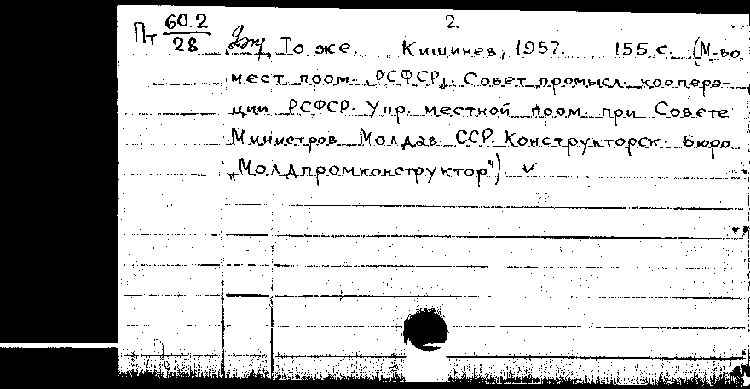 2.
Пт 60.2/28 То же. Кишинев, 1957. 155 с. (М-во
мест пром. РСФСР. Совет промысл. коопера-
ции РСФСР. Упр. местной пром. при Совете
Министров Молдав ССР. Конструкторск. бюро
„Молдпромконструктор") v